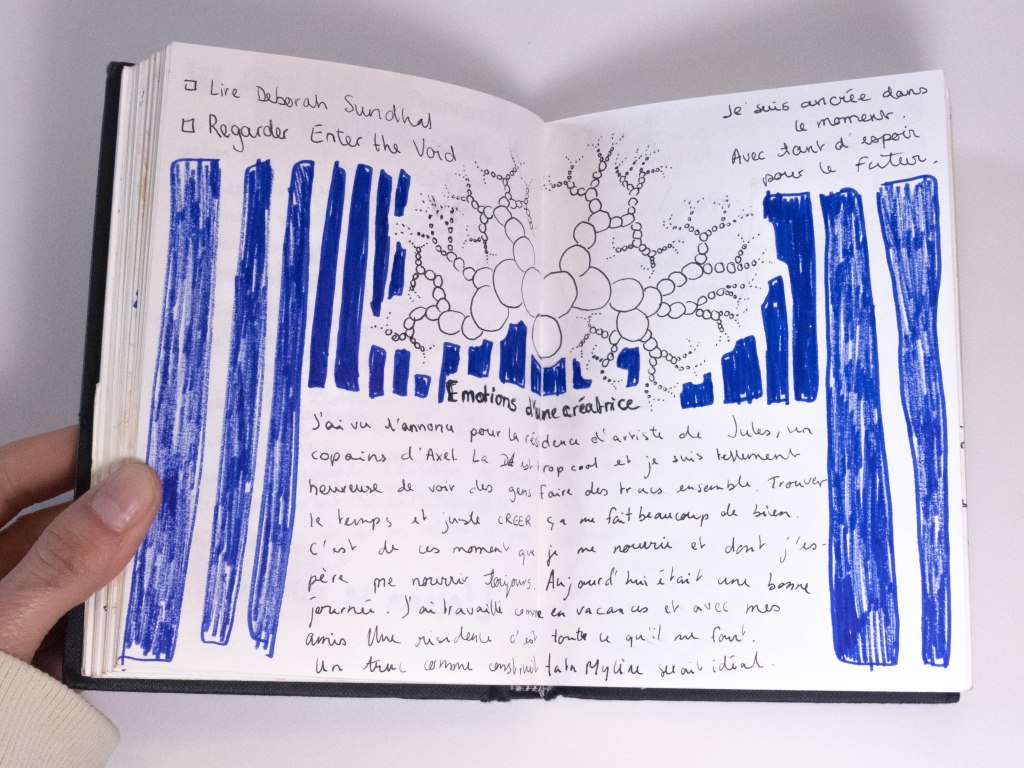 Lire Deborah Sundhal
Regarder Enter the Void
Je suis ancrée dans
le moment.
Avec tant d'espoir
pour le futur.
Emotions d'une créatrice
J'ai vu l'annonce pour la résidence d'artiste de Jules, un
copains d'Axel. La trop cool et je suis tellement
heureuse de voir des gens faire des trucs ensemble. Trouver
le temps et juste CREER ça me fait beaucoup de bien.
C'est de ces moment que je me nourrie et dont j'es-
père me nourrir toujours. Aujourd'hui était une bonne
journée. J'ai travaillé comme en vacances et avec mes
amis Une résidence c'est toute ce qu'il me faut.
Un truc comme construit Myline serait idéal.